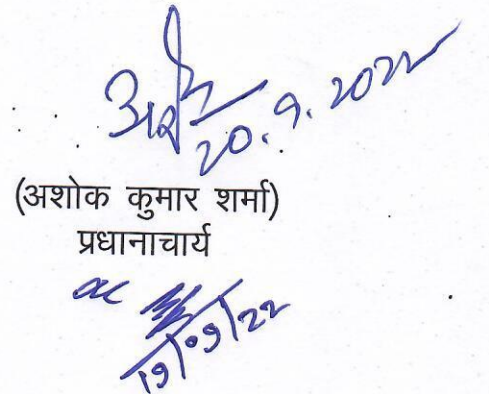 20.9.2022
(अशोक कुमार शर्मा)
प्रधानाचार्य
19/09/22